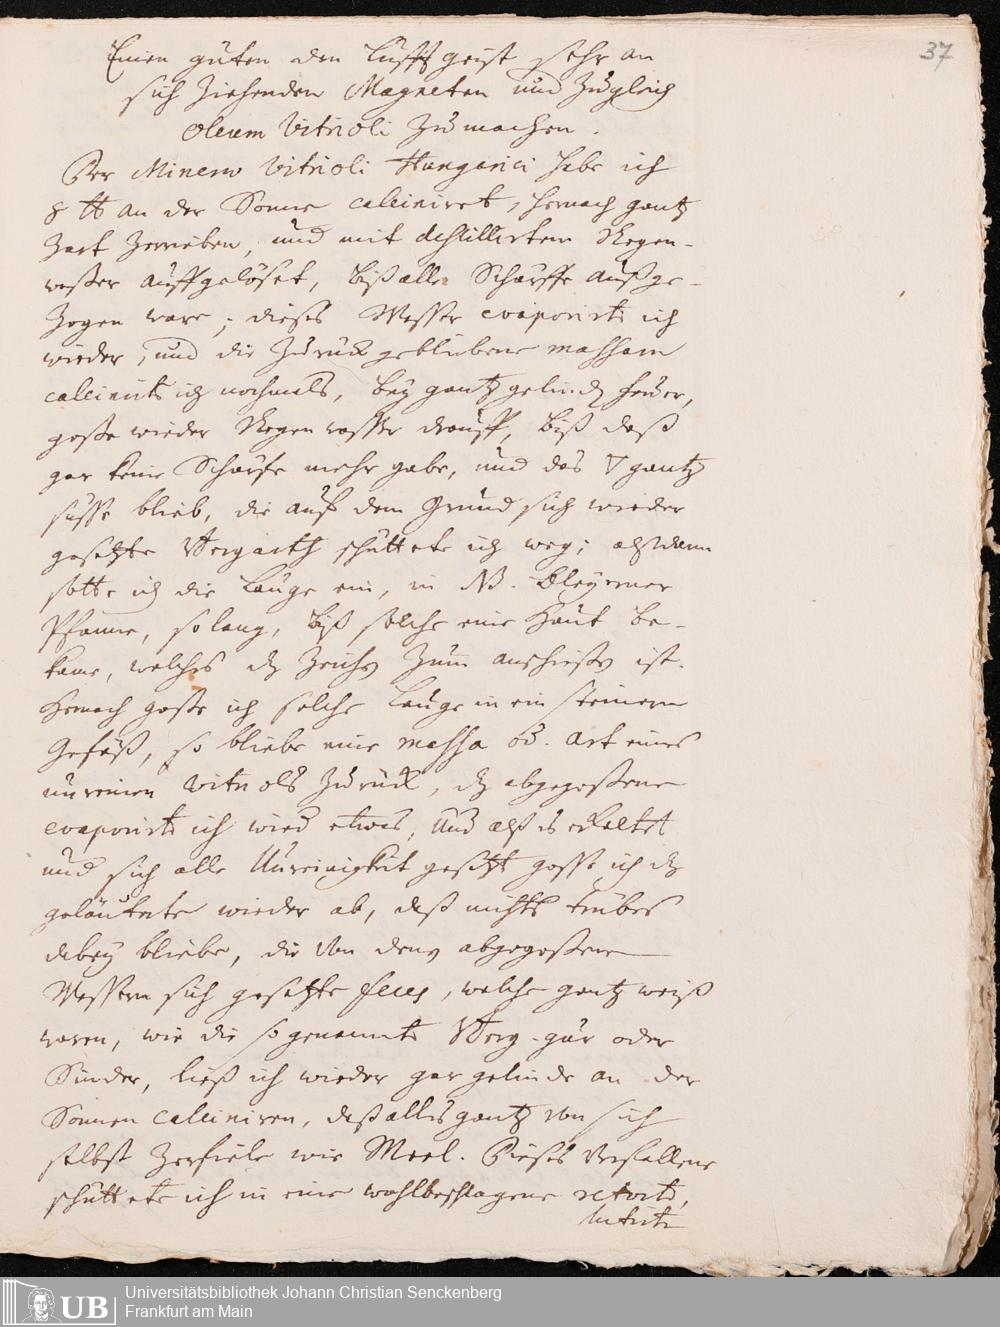 37
Einen guten den Lufftgeist sehr an
sich ziehenden Magneten und zugleich
oleum Vitrioli zu machen.
Der Minera Vitrioli Hungarici habe ich
8 ℔ an der Sonne calciniret, hernach gantz
zart zerrieben, und mit destillirtem Regen-
waßer auffgelöset, biß alle Schärffe außge-
zogen ware; dieses Wasser evaporirte ich
wieder, und die zurück gebliebene massam
calcinirte ich nochmals, bey gantz gelindem feuer,
goße wieder Regen wasser drauff, biß daß
gar keine Schärfe mehr gabe, und das ▽ gantz
süsse blieb, die auf dem Grund sich wieder
gesetzte schüttete ich weg; alßdann
sotte ich die Lauge ein, in NB. bleyerner
Pfanne, so lang, biß solche eine Haut be-
kame, welches das Zeichen zum anschießen ist.
Hernach goße ich solche Lauge in ein steinern
Gefäß, so bliebe eine massa od. Art eines
unreinen Vitriols zurück, das abgegoßene
evaporirte ich wied etwas, und alß es erkaltet
und sich alle Unreinigkeit gesetzt gosse ich das
geläuterte wieder ab, daß nichts trübes
dabey bliebe, die von dem abgegoßenen
Wassern sich gesetzte feces, welche gantz weiß
waren, wie die so genannte Berg-gur oder
Sinder, ließ ich wieder gar gelinde an der
Sonnen calciniren, daß alles gantz von sich
selbst zerfiele wie Meel. Dieses verfallene
schüttete ich in eine wohlbeschlagene retorte,
lutirte
UB
Universitätsbibliothek Johann Christian Senckenberg
Frankfurt am Main